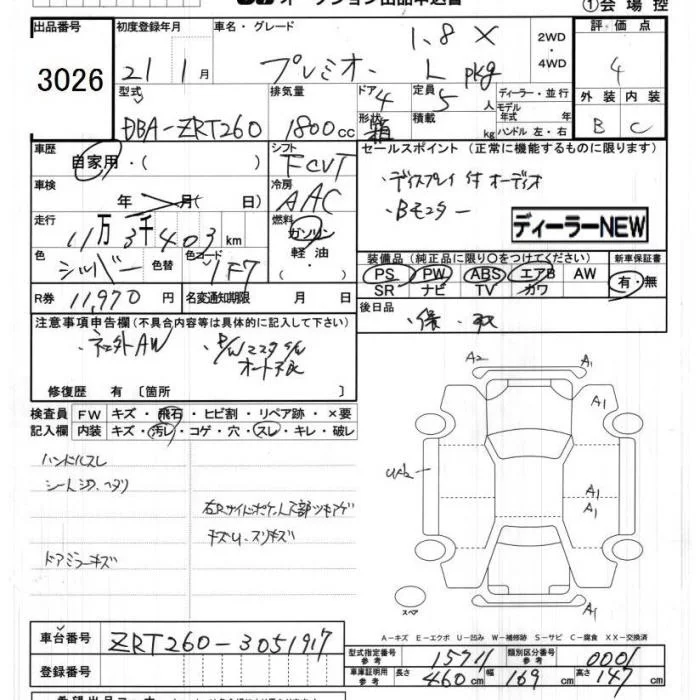 ①会場控
出品番号
3026
初度登録年月
21 1月
車名・グレード
1.8 X
プレミオ L pkg
2WD
・
4WD
評価点
4
外装 内装
B C
型式
DBA-ZRT260
排気量
1800cc
ドア
4
形状
箱
定員
5人
積載 kg
ディーラー・並行
モデル
年式 年
ハンドル 左・右
車歴
自家用・( )
シフト
FCVT
セールスポイント (正常に機能するものに限ります)
・ディスプレイ付オーディオ
・Bモニター
ディーラーNEW
車検
年 月( 日)
冷房
AAC
走行
11万3千403km
燃料
ガソリン
軽油
・
色
シルバー
色替
色コード
1F7
装備品 (純正品に限り〇をつけてください)
PS PW ABS エアB AW
SR ナビ TV カワ
新車保証書
有・無
R券 11,970 円
名変通知期限 月 日
後日品
・保・取
注意事項申告欄(不具合内容等は具体的に記入して下さい)
・社外AW ・P/WマスタS/W
オート不良
修復歴 有 [箇所 ]
検査員
記入欄
FW キズ・飛石・ヒビ割・リペア跡・×要
内装 キズ・汚レ・コゲ・穴・スレ・キレ・破レ
ハンドルスレ
シートシワ、ヘタリ
右Rサイドポケット下部ツキアゲ
キズU、スリキズ
ドアミラーキズ
A2 A1
A1
UA2
A1
A1
A1
スペア
A-キズ E-エクボ U-凹み W-補修跡 S-サビ C-腐食 XX-交換済
車台番号 ZRT260-3051917
登録番号
型式指定番号
参考
15711
類別区分番号
参考
0001
車庫証明用
参考
長さ 460cm 幅 169cm 高さ 147cm